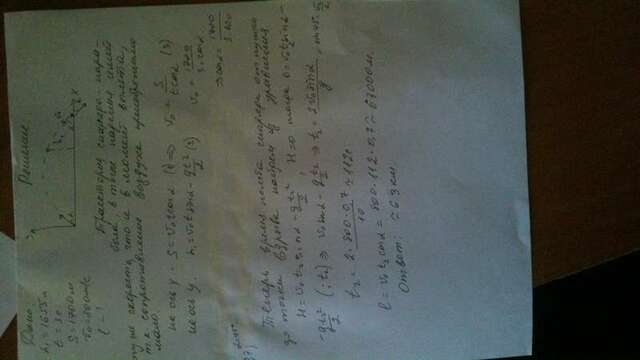 Дано: Решение
h₁ = 1655м
t = 3с
S = 1700м
v₀ = 800м/с
l - ?
y
x
Траектория снаряда - пара-
бола, в точке падения имеет
ту же скорость, что и в момент вылета,
т.к сопротивление воздуха пренебрежимо
мало.
на ось x - S = v₀t cosα (1) ⇒ v₀ = S/(t cosα) (3)
на ось y. h₁ = v₀t sinα - gt²/2 (2) v₀ = 1700/(3·cosα)
⇒ cosα = 1700/(3·800)
Теперь время полёта снаряда от пушки
до точки взрыва найдем из уравнения
H = v₀t₂ sinα - gt₂²/2, H=0 тогда 0 = v₀t₂ sinα -
- gt₂²/2 (:t₂) ⇒ v₀ sinα - gt₂/2 ⇒ t₂ = 2v₀sinα/g, sin45 = √2/2
t₂ = 2·800·0,7/10 ≈ 112с
l = v₀t₂ cosα = 800·112·0,7 ≈ 63000м.
Ответ: ≈ 63км.